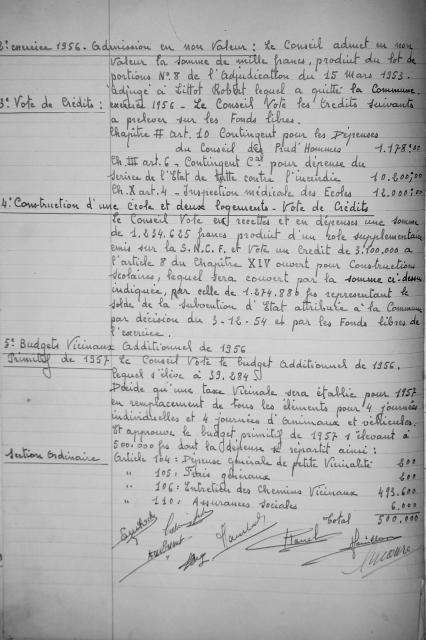 2° exercice 1956 - Admission en non Valeur : Le Conseil admet en non
Valeur la somme de mille francs, produit du lot de
portions N° 8 de l'Adjudication du 15 Mars 1953.
adjugé à Littot Robert lequel a quitté la Commune.
3° Vote de Crédits : exercice 1956 - Le Conseil Vote les Crédits suivants
a prelever sur les Fonds libres.
Chapitre II art. 10 Contingent pour les Dépenses
du Conseil des Prud'Hommes 1.178,00
Ch III art. 6 - Contingent Cal pour dépense du
Service de l'Etat de lutte contre l'incendie 10.200,00
Ch X art. 4 - Inspection médicale des Ecoles 12.000,00
4° Construction d'une école et deux logements - Vote de Crédits
Le Conseil Vote en recettes et en dépenses une somme
de 1.234.625 francs produit d'un role supplémentaire
émis sur la S.N.C.F. et Vote un Credit de 3.100.000 a
l'article 8 du Chapitre XIV ouvert pour Constructions
scolaires, lequel sera couvert par la somme ci-dessus
indiquée, par celle de 1.274.886 frs représentant le
solde de la subvention d'Etat attribuée à la Commune
par décision du 3-12-54 et par les Fonds libres de
l'exercice.
5° Budgets Vicinaux Additionnel de 1956
Primitif de 1957 Le Conseil Vote le budget Additionnel de 1956.
lequel s'élève à 39.284
Décide qu'une taxe Vicinale sera établie pour 1957
en remplacement de tous les éléments pour 4 journées
individuelles et 4 journées d'animaux et véhicules.
Et approuve le budget primitif de 1957 s'élevant à
500.000 frs dont la dépense se répartit ainsi :
Section Ordinaire Article 104 : Dépense générale de petite Vicinalité 200
" 105 : Frais généraux 200
" 106 : Entretien des Chemins Vicinaux 493.600
" 110 : Assurances sociales 6.000
total 500.000